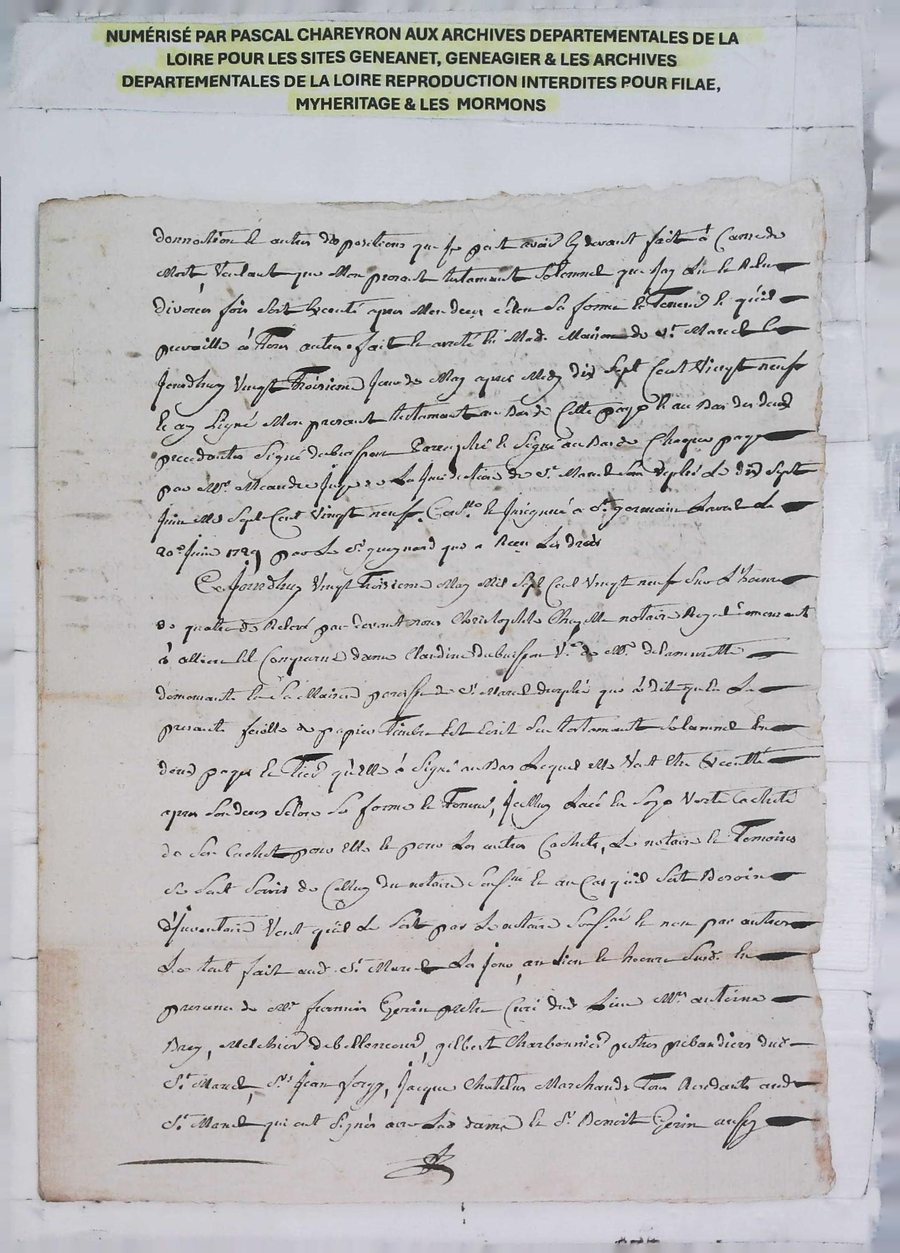 NUMÉRISÉ PAR PASCAL CHAREYRON AUX ARCHIVES DEPARTEMENTALES DE LA
LOIRE POUR LES SITES GENEANET, GENEAGIER & LES ARCHIVES
DEPARTEMENTALES DE LA LOIRE REPRODUCTION INTERDITES POUR FILAE,
MYHERITAGE & LES MORMONS
donnation et autres dispositions que je peut avoir cy devant fait à Cause de
Mort, Veulant que Mon present testament Solemnel que Jay Lu et Relu
diverses fois soit Executé apres Mon deces selon sa forme et Teneur et qu'il
prevaille à Tous autres fait et areté En Mad. Maison de St Marcel Ce
Jourdhuy Vingt Troisieme Jour de May apres Midy dix Sept Cent Vingt neuf
et ay Signé Mon present testament au Bas de Cette page et au Bas des deux
precedentes Signé dubuisson Paraphé et Signé au Bas de Chaque page
par Mr Meandre Juge de La Juridiction de St Marcel Le dix Sept
Juin Mil Sept Cent Vingt neuf, Con.lle et Insinué à St germain Laval Le
20e Juin 1729 par Le Sr guignard qui a Recu Les droits
Ce Jourdhuy Vingt Troisieme May Mil Sept Cent Vingt neuf Sur L'heure
de quatre de Relevé par devant nous Christophle Chazelle notaire Royal
à allieu Est Comparue dame Claudine dubuisson Ve de Mr delamurette
demeurante En Sa Maison paroisse de St Marcel durphé qui à dit que La
presente feuille de papier Timbré Est Ecrit Son testament Solemnel En
deux pages et Tiers qu'elle à Signé au Bas Lequel elle Veut Etre Executé
apres Son deces Selon Sa forme et Teneur, Icelluy Lacé En Soye Verte Cacheté
de Son Cachet pour elle et pour Les autres Cachets, Le notaire et Temoins
Se Sont Servis de Celluy du notaire Sousné et au Cas qu'il Soit Besoin
d'Inventaire Veut qu'il Le Soit par Le notaire Sousné et non par autres
Le tout fait aud. St Marcel Les Jour, an Lieu et heure Susd. En
presence de Mre francois Gerin pretre Curé dud. Lieu Mre antoine
Brey, Melchior debellencour, gilbert Charbonnier pretres prebandiers dud.
St Marcel, Srs Jean forge, Jacque Chatelus Marchands Tous Residants aud.
St Marcel qui ont Signés avec Lad. dame et Sr Benoit Gerin aussy